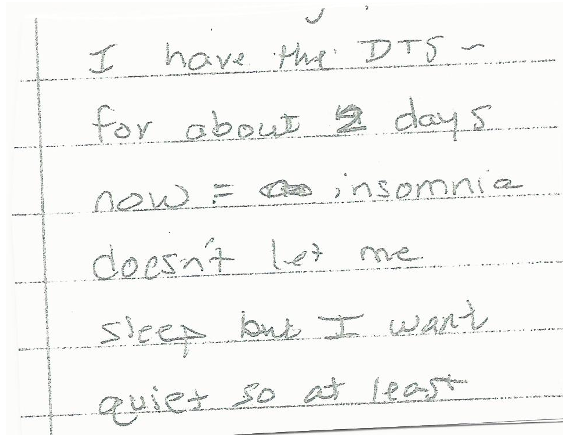 I have the DTS ~
for about 2 days
now = insomnia
doesn't let me
sleep but I want
quiet so at least